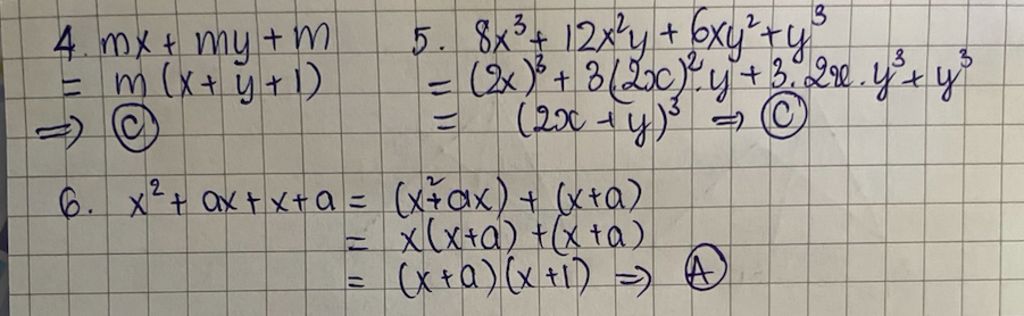 4. mx + my + m
= m (x + y + 1)
⇒ Ⓒ
5. 8x³ + 12x²y + 6xy² + y³
= (2x)³ + 3(2x)².y + 3.2x.y³ + y³
= (2x + y)³ ⇒ Ⓒ
6. x² + ax + x + a = (x² + ax) + (x + a)
= x(x + a) + (x + a)
= (x + a)(x + 1) ⇒ Ⓐ